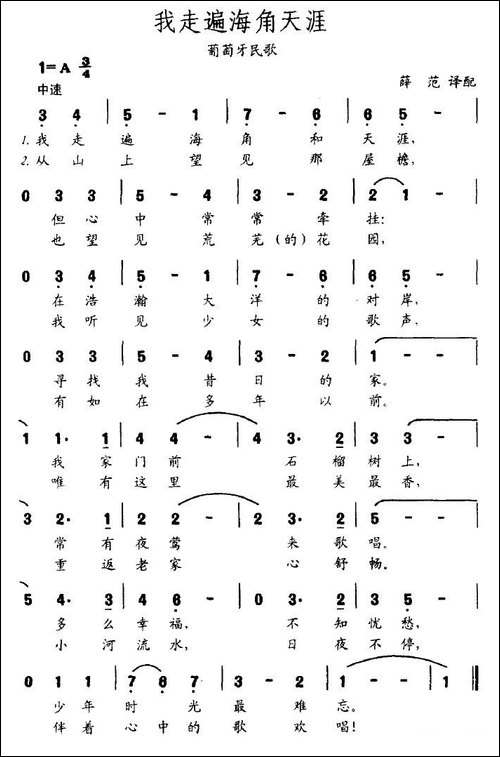 我走遍海角天涯
葡萄牙民歌
1=A 3/4
中速
薛 范 译配
3 4 | 5 - 1 | 7 - 6 | 6 5 -
1.我走遍海角和天涯,
2.从山上望见那屋檐,
0 3 3 | 5 - 4 | 3 - 2 | 2 1 -
但心中常常牵挂:
也望见荒芜(的)花园,
0 3 4 | 5 - 1 | 7 - 6 | 6 5 -
在浩瀚大洋的对岸,
我听见少女的歌声,
0 3 3 | 5 - 4 | 3 - 2 | 1 - -
寻找我昔日的家。
有如在多年以前。
1 1· 1 | 4 4 - | 4 3· 2 | 3 3 -
我家门前石榴树上,
唯有这里最美最香,
3 2· 1 | 2 2 - | 2 3· 2 | 5 - -
常有夜莺来歌唱。
重返老家心舒畅。
5 4· 3 | 4 6 - | 0 3· 2 | 3 5 -
多么幸福,不知忧愁,
小河流水,日夜不停,
0 1 1 | 7 6 7 | 3 - 2 | 1 - - | 1
少年时光最难忘。
伴着心中的歌欢唱!